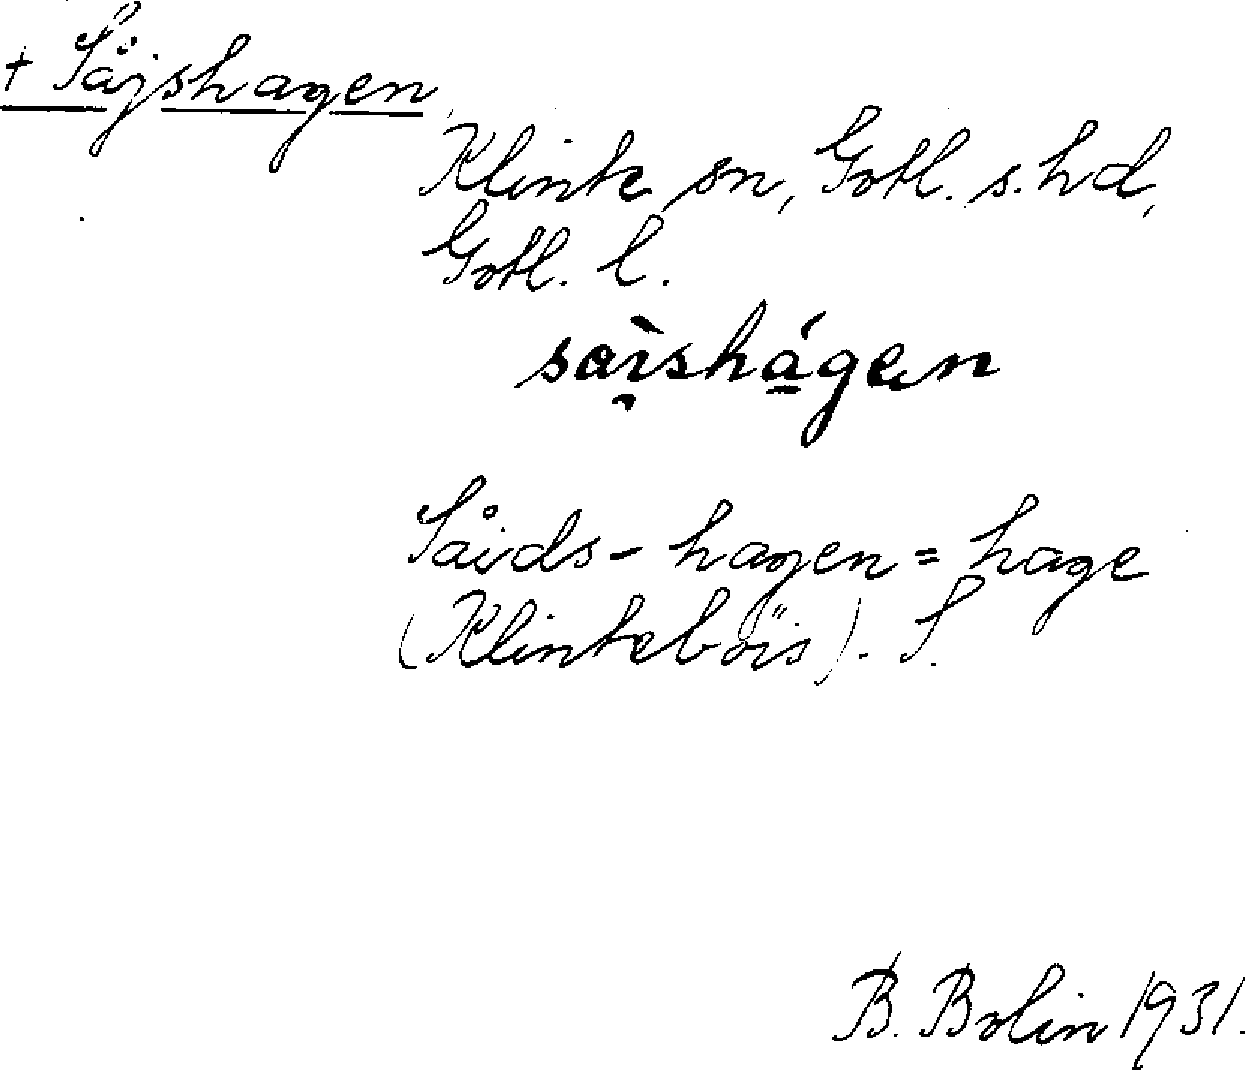 + Såjshagen
Klinte sn, Gotl. s. hd,
Gotl. l.
saìshágen
Såids-hagen = hage
(Klinteböis). S.
B. Bolin 1931.